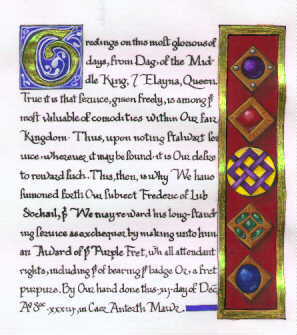 Greetings on this most glorious of
days, from Dag, of the Mid-
dle King, 7 Elayna, Queen.
True it is that service, given freely, is among þe
most valuable of comodities within Our fair
Kingdom. Thus, upon noting stalwart ser
vice wherever it may be found it is Our desire
to reward such. This, then, is why We have
sumoned forth Our subject Frederic of Lub
Sochail, þt We may reward his long-stand
ing service as exchequer by making unto him
an Award of þe Purple Fret, with all attendant
rights, including þt of bearing þe badge Or, a fret
purpure. By Our hand done this xij day of Dec
AS xxxiij, in Caer Anterth Mawr.